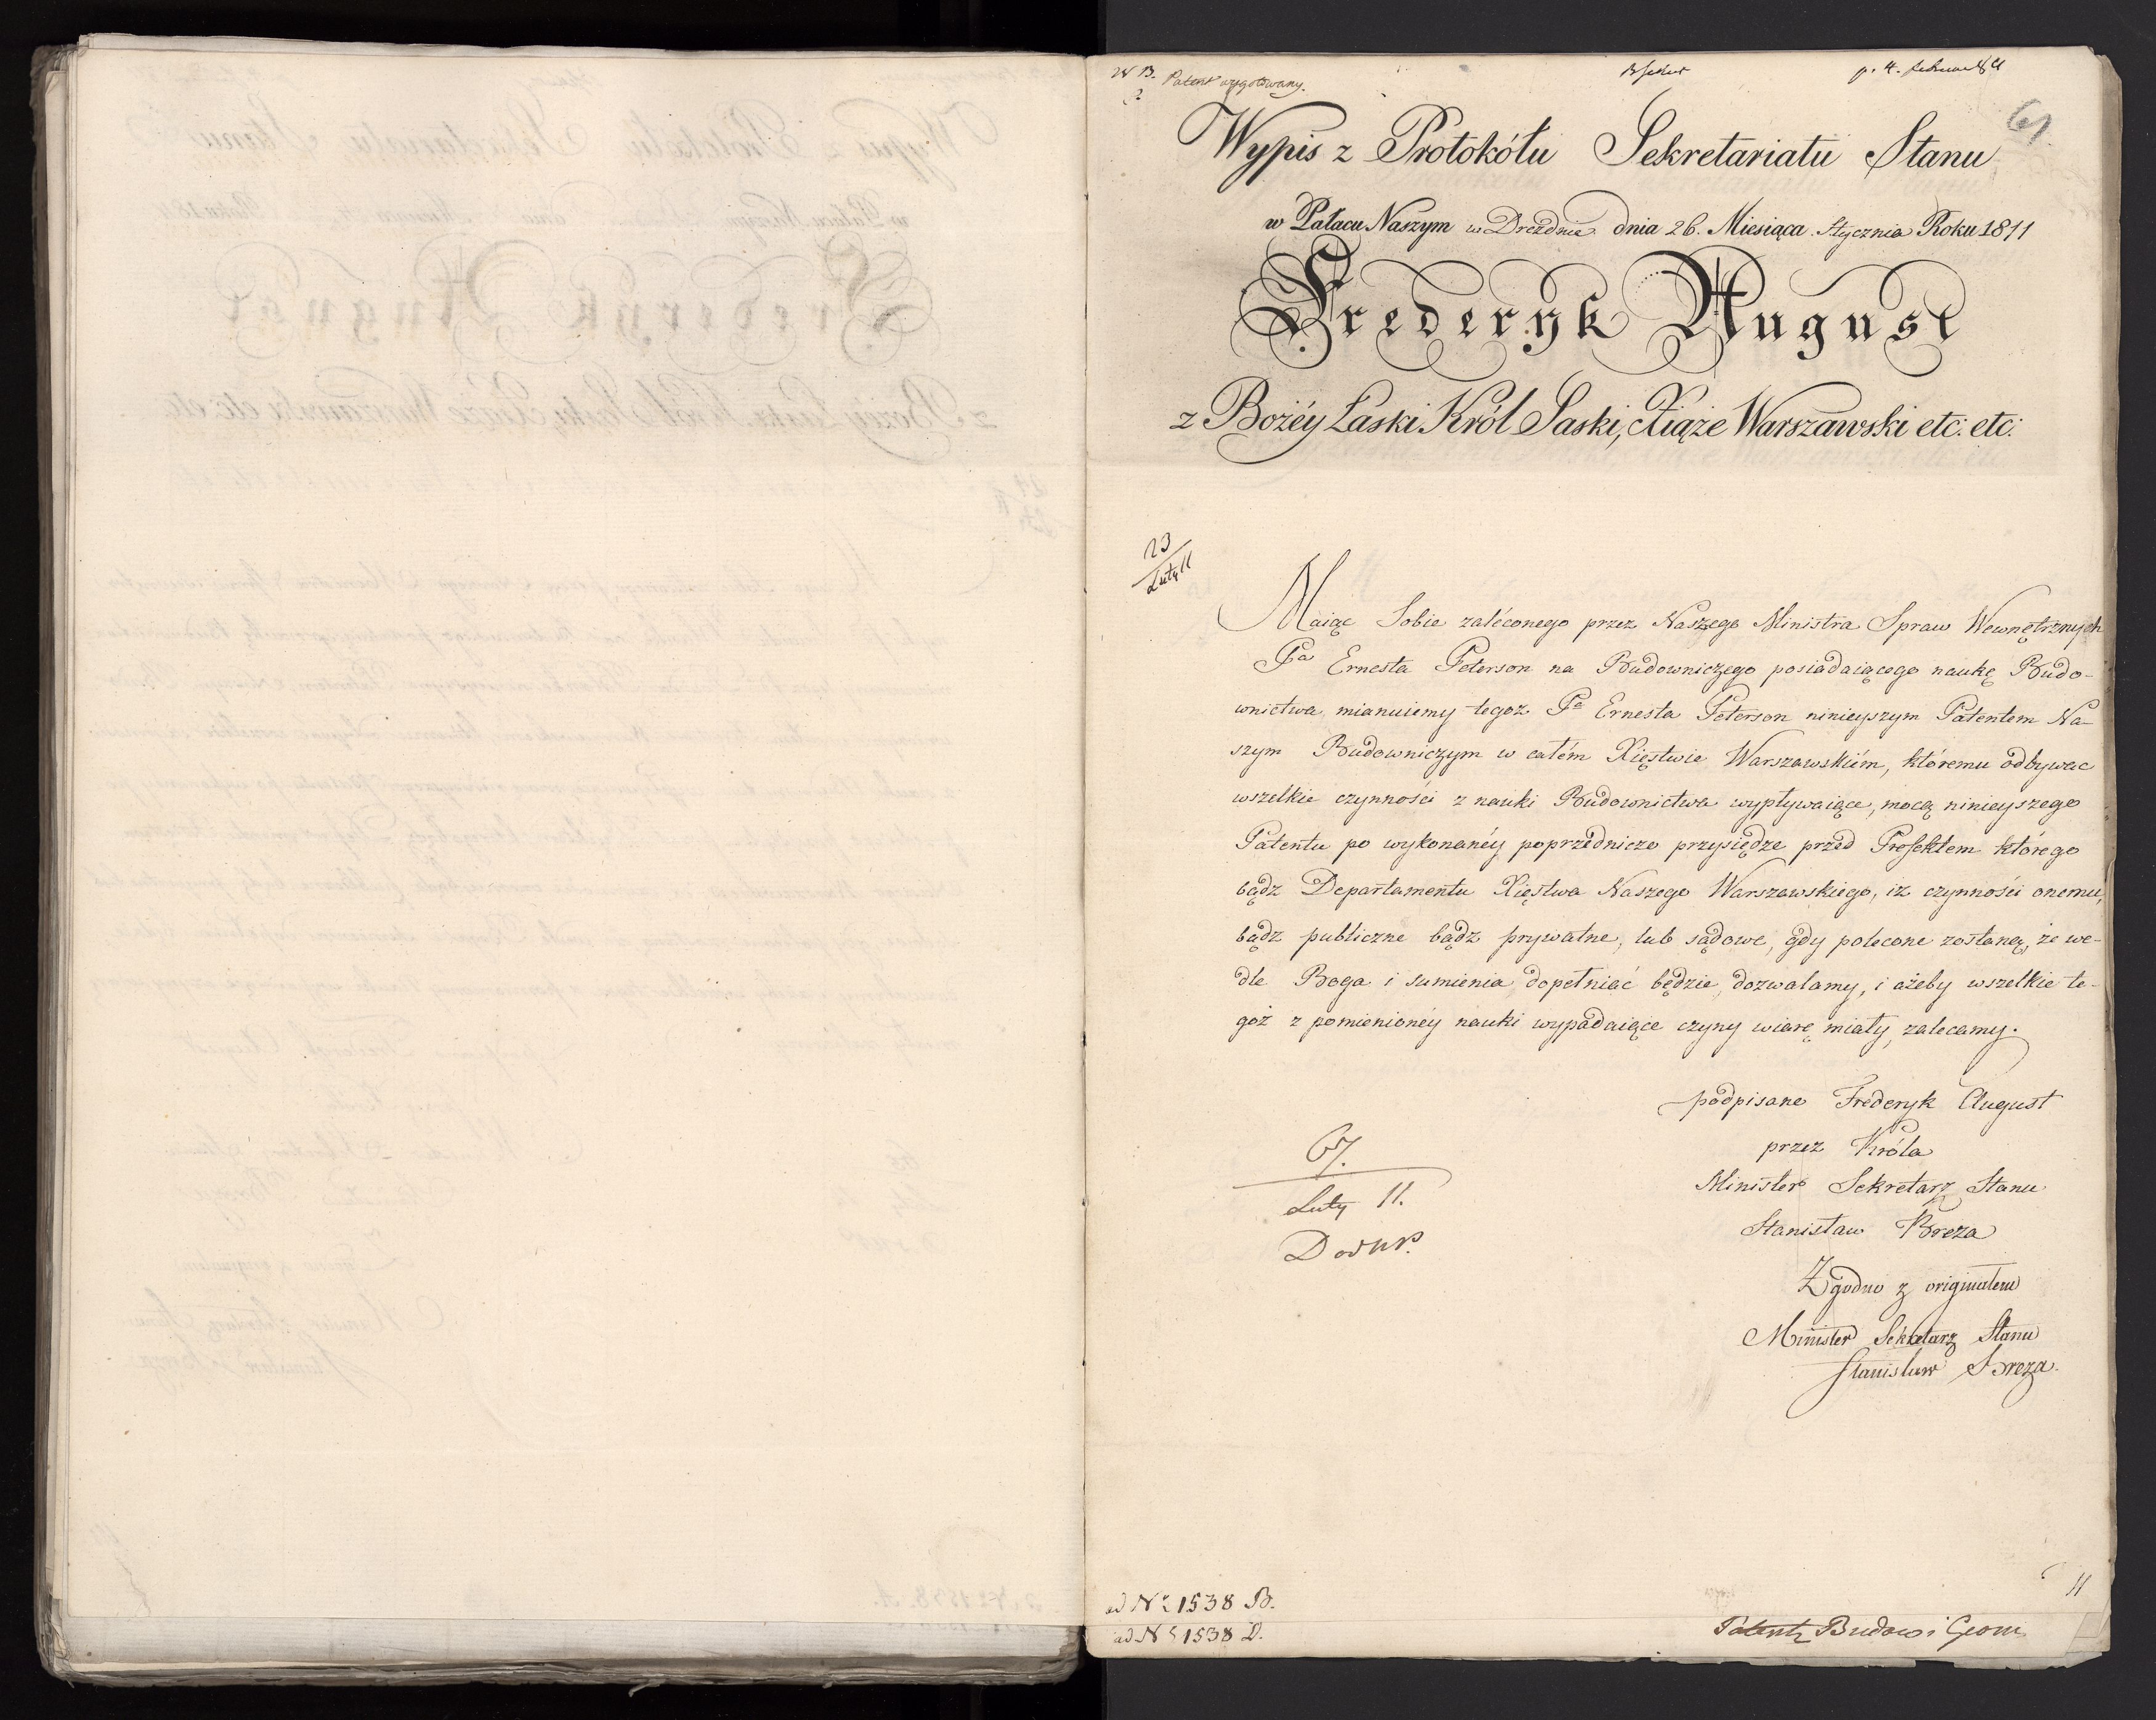 Patent wygotowany.
61.
Wypis z Protokółu Sekretariatu Stanu
w Pałacu Naszym w Dreźdnie dnia 26. Miesiąca Stycznia Roku 1811
Frederyk August
z Bożéy Łaski Król Saski, Xiąże Warszawski etc: etc:
23
Luty 11
Maiąc Sobie zaléconego przez Naszego Ministra Spraw Wewnętrznych
Pa Ernesta Peterson na Budowniczego posiadaiącego naukę Budo-
wnictwa mianuiemy tegoż Pa Ernesta Peterson ninieyszym Patentem Na-
szym Budowniczym w całém Xięstwie Warszawskiém, któremu odbywac
wszelkie czynności z nauki Budownictwa wypływaiące, mocą ninieyszego
Patentu po wykonanéy poprzedniczo przysiędze przed Prefektem którego
bądz Departamentu Xięstwa Naszego Warszawskiego, iż czynności onemu,
bądz publiczne bądz prywatne, lub sądowe, gdy polecone zostaną, że we-
dle Boga i sumienia dopełniać będzie, dozwalamy, i ażeby wszelkie te-
goż z pomienionéy nauki wypadaiące czyny wiarę miały, zalecamy.
podpisano Frederyk August
przez Króla
Minister Sekretarz Stanu
Stanisław Breza
67.
Luty 11.
Zgodno z originałem
Minister Sekretarz Stanu
Stanisław Breza.
ad No 1538 B.
ad No 1538 D.
11
Patenta Budow i Geom